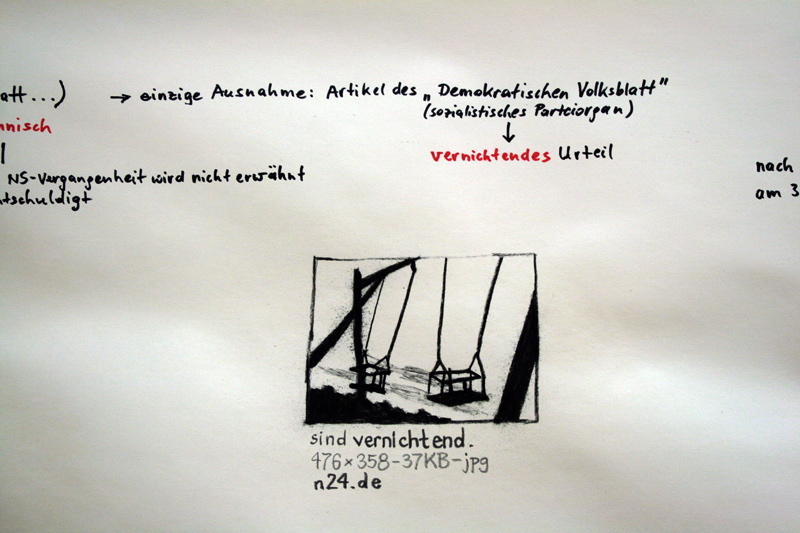 att...) → einzige Ausnahme: Artikel des „Demokratischen Volksblatt"
(sozialistisches Parteiorgan)
↓
nnisch
vernichtendes Urteil
NS-Vergangenheit wird nicht erwähnt
ntschuldigt
nach
am 3
sind vernichtend.
476×358-37KB-jpg
n24.de